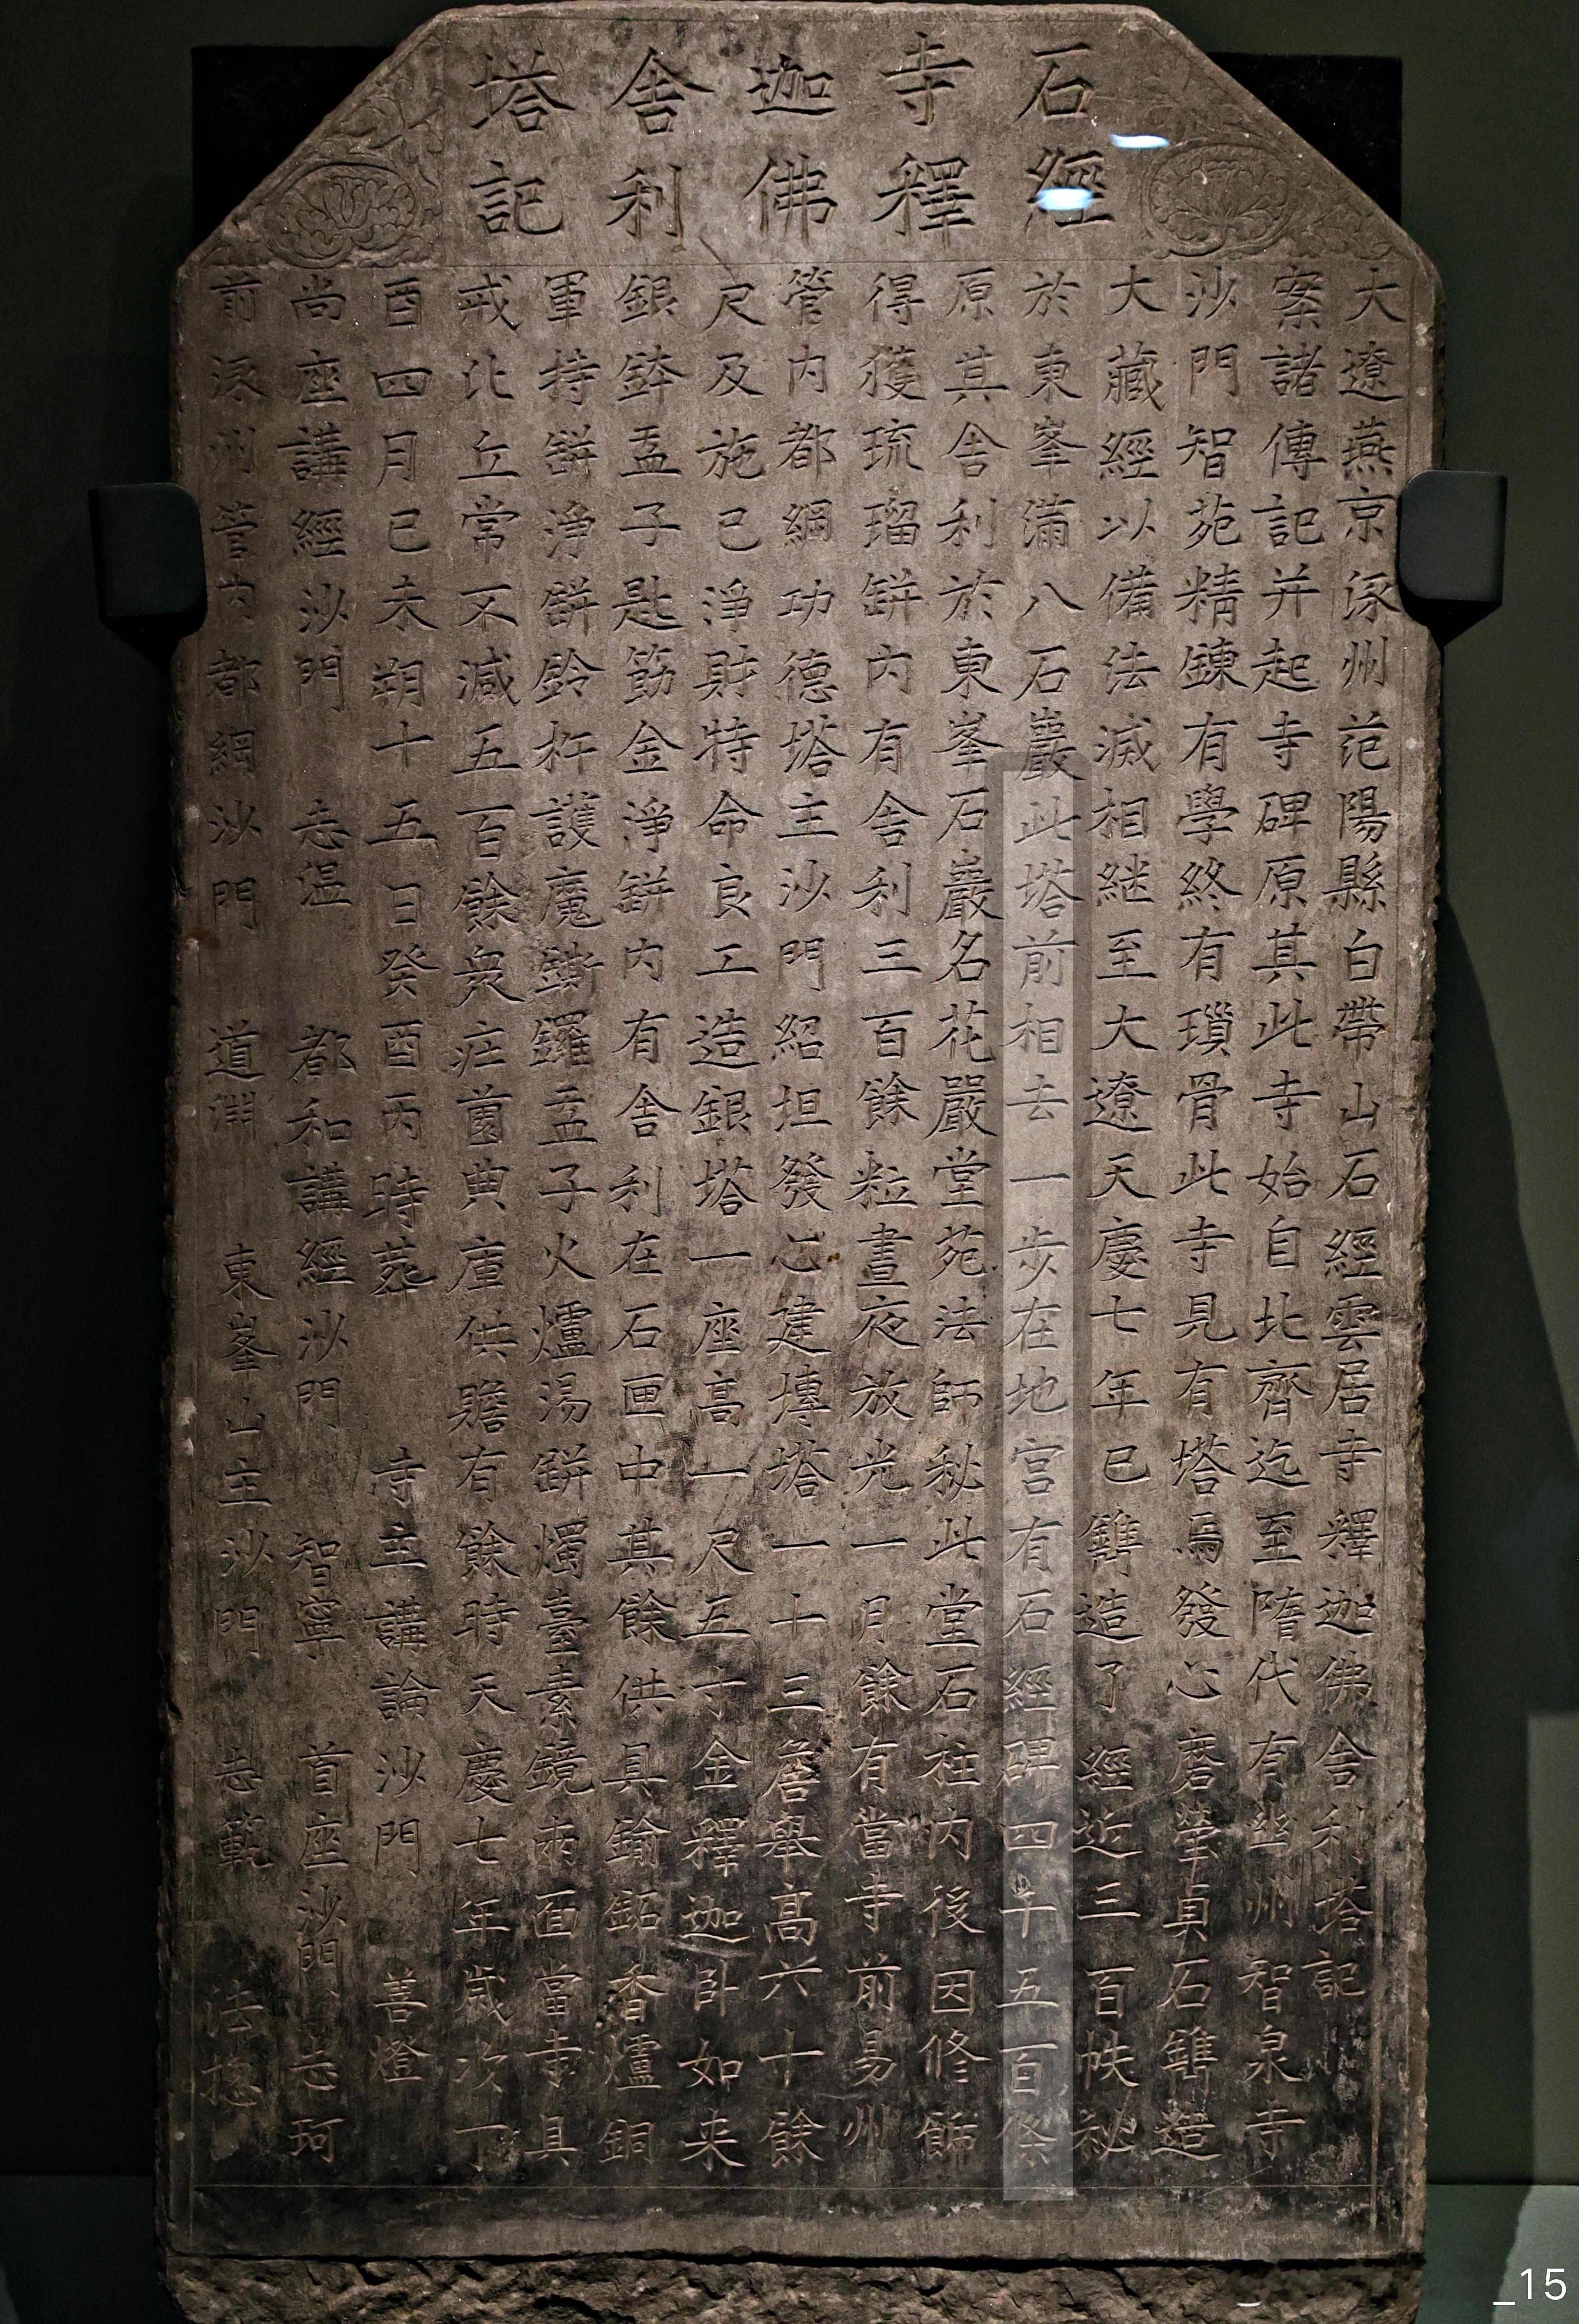 石經
寺釋
迦佛
舍利
塔記
大遼燕京涿州范陽縣白帶山石經雲居寺釋迦佛舍利塔記
案諸傳記并起寺碑原其此寺始自北齊迄至隋代有幽州智泉寺
沙門智苑精鍊有學終有瑣骨此寺見有塔焉發心磨瑩貞石鐫造
大藏經以備法滅相継至大遼天慶七年已鐫造了經近三百帙秘
於東峯滿八石巖此塔前相去一步在地宮有石經碑四千五百條
原其舍利於東峯石巖名花嚴堂苑法師秘此堂石柱内後因修餙
得獲琉瑠缾内有舍利三百餘粒晝夜放光一月餘有當寺前易州
管内都綱功德塔主沙門紹坦發心建塼塔一十三簷舉高六十餘
尺及施已淨財特命良工造銀塔一座高一尺五寸金釋迦卧如来
銀鉢盂子匙筯金淨缾内有舍利在石匣中其餘供具鍮鉐香爐銅
軍持缾淨缾鈴杵護魔鐁鑼盂子火爐湯缾燭臺素鏡兩面當寺具
戒比丘常不減五百餘衆庄薗典庫供贍有餘時天慶七年歲次丁
酉四月已未朔十五日癸酉丙時葬 寺主講論沙門 善燈
尚座講經沙門 志温 都和講經沙門 智寧 首座沙門 志珂
前涿州管内都綱沙門 道淵 東峯山主沙門 志範 法揔
_15